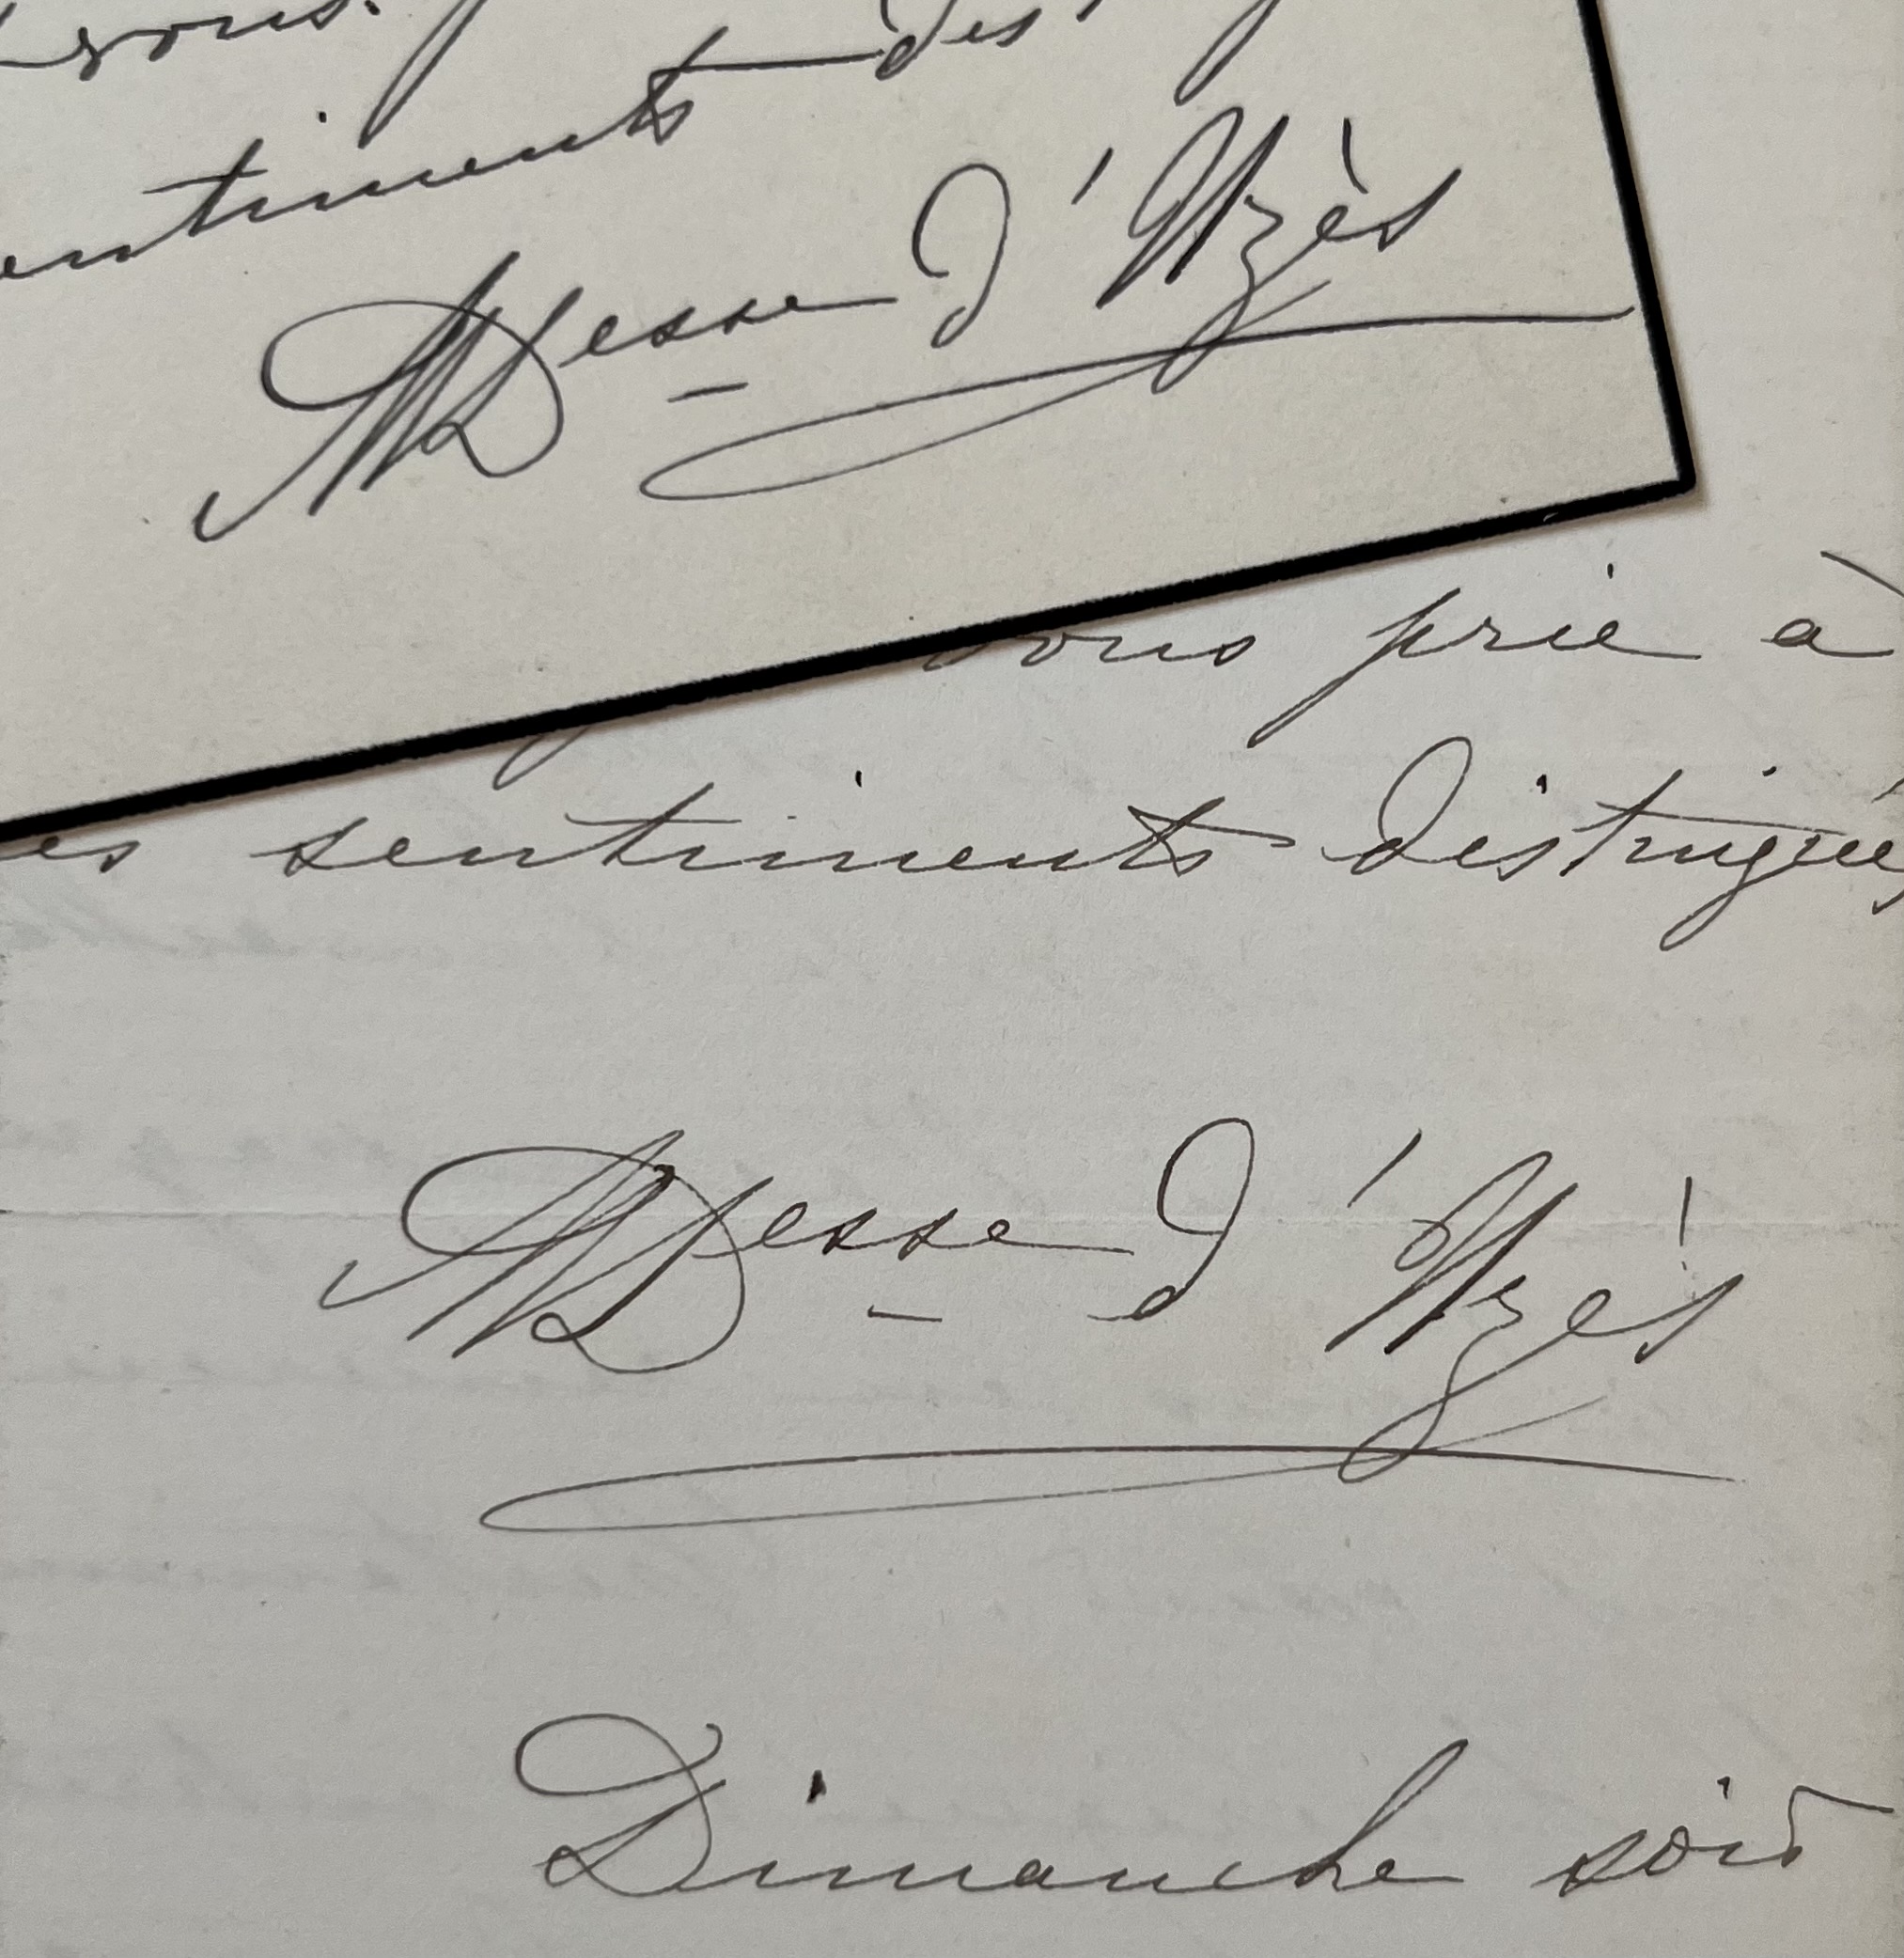 vous.
des
entiments
MDesse d'Uzès
vous prie à
es sentiments distingués
MDesse d'Uzès
Dimanche soir